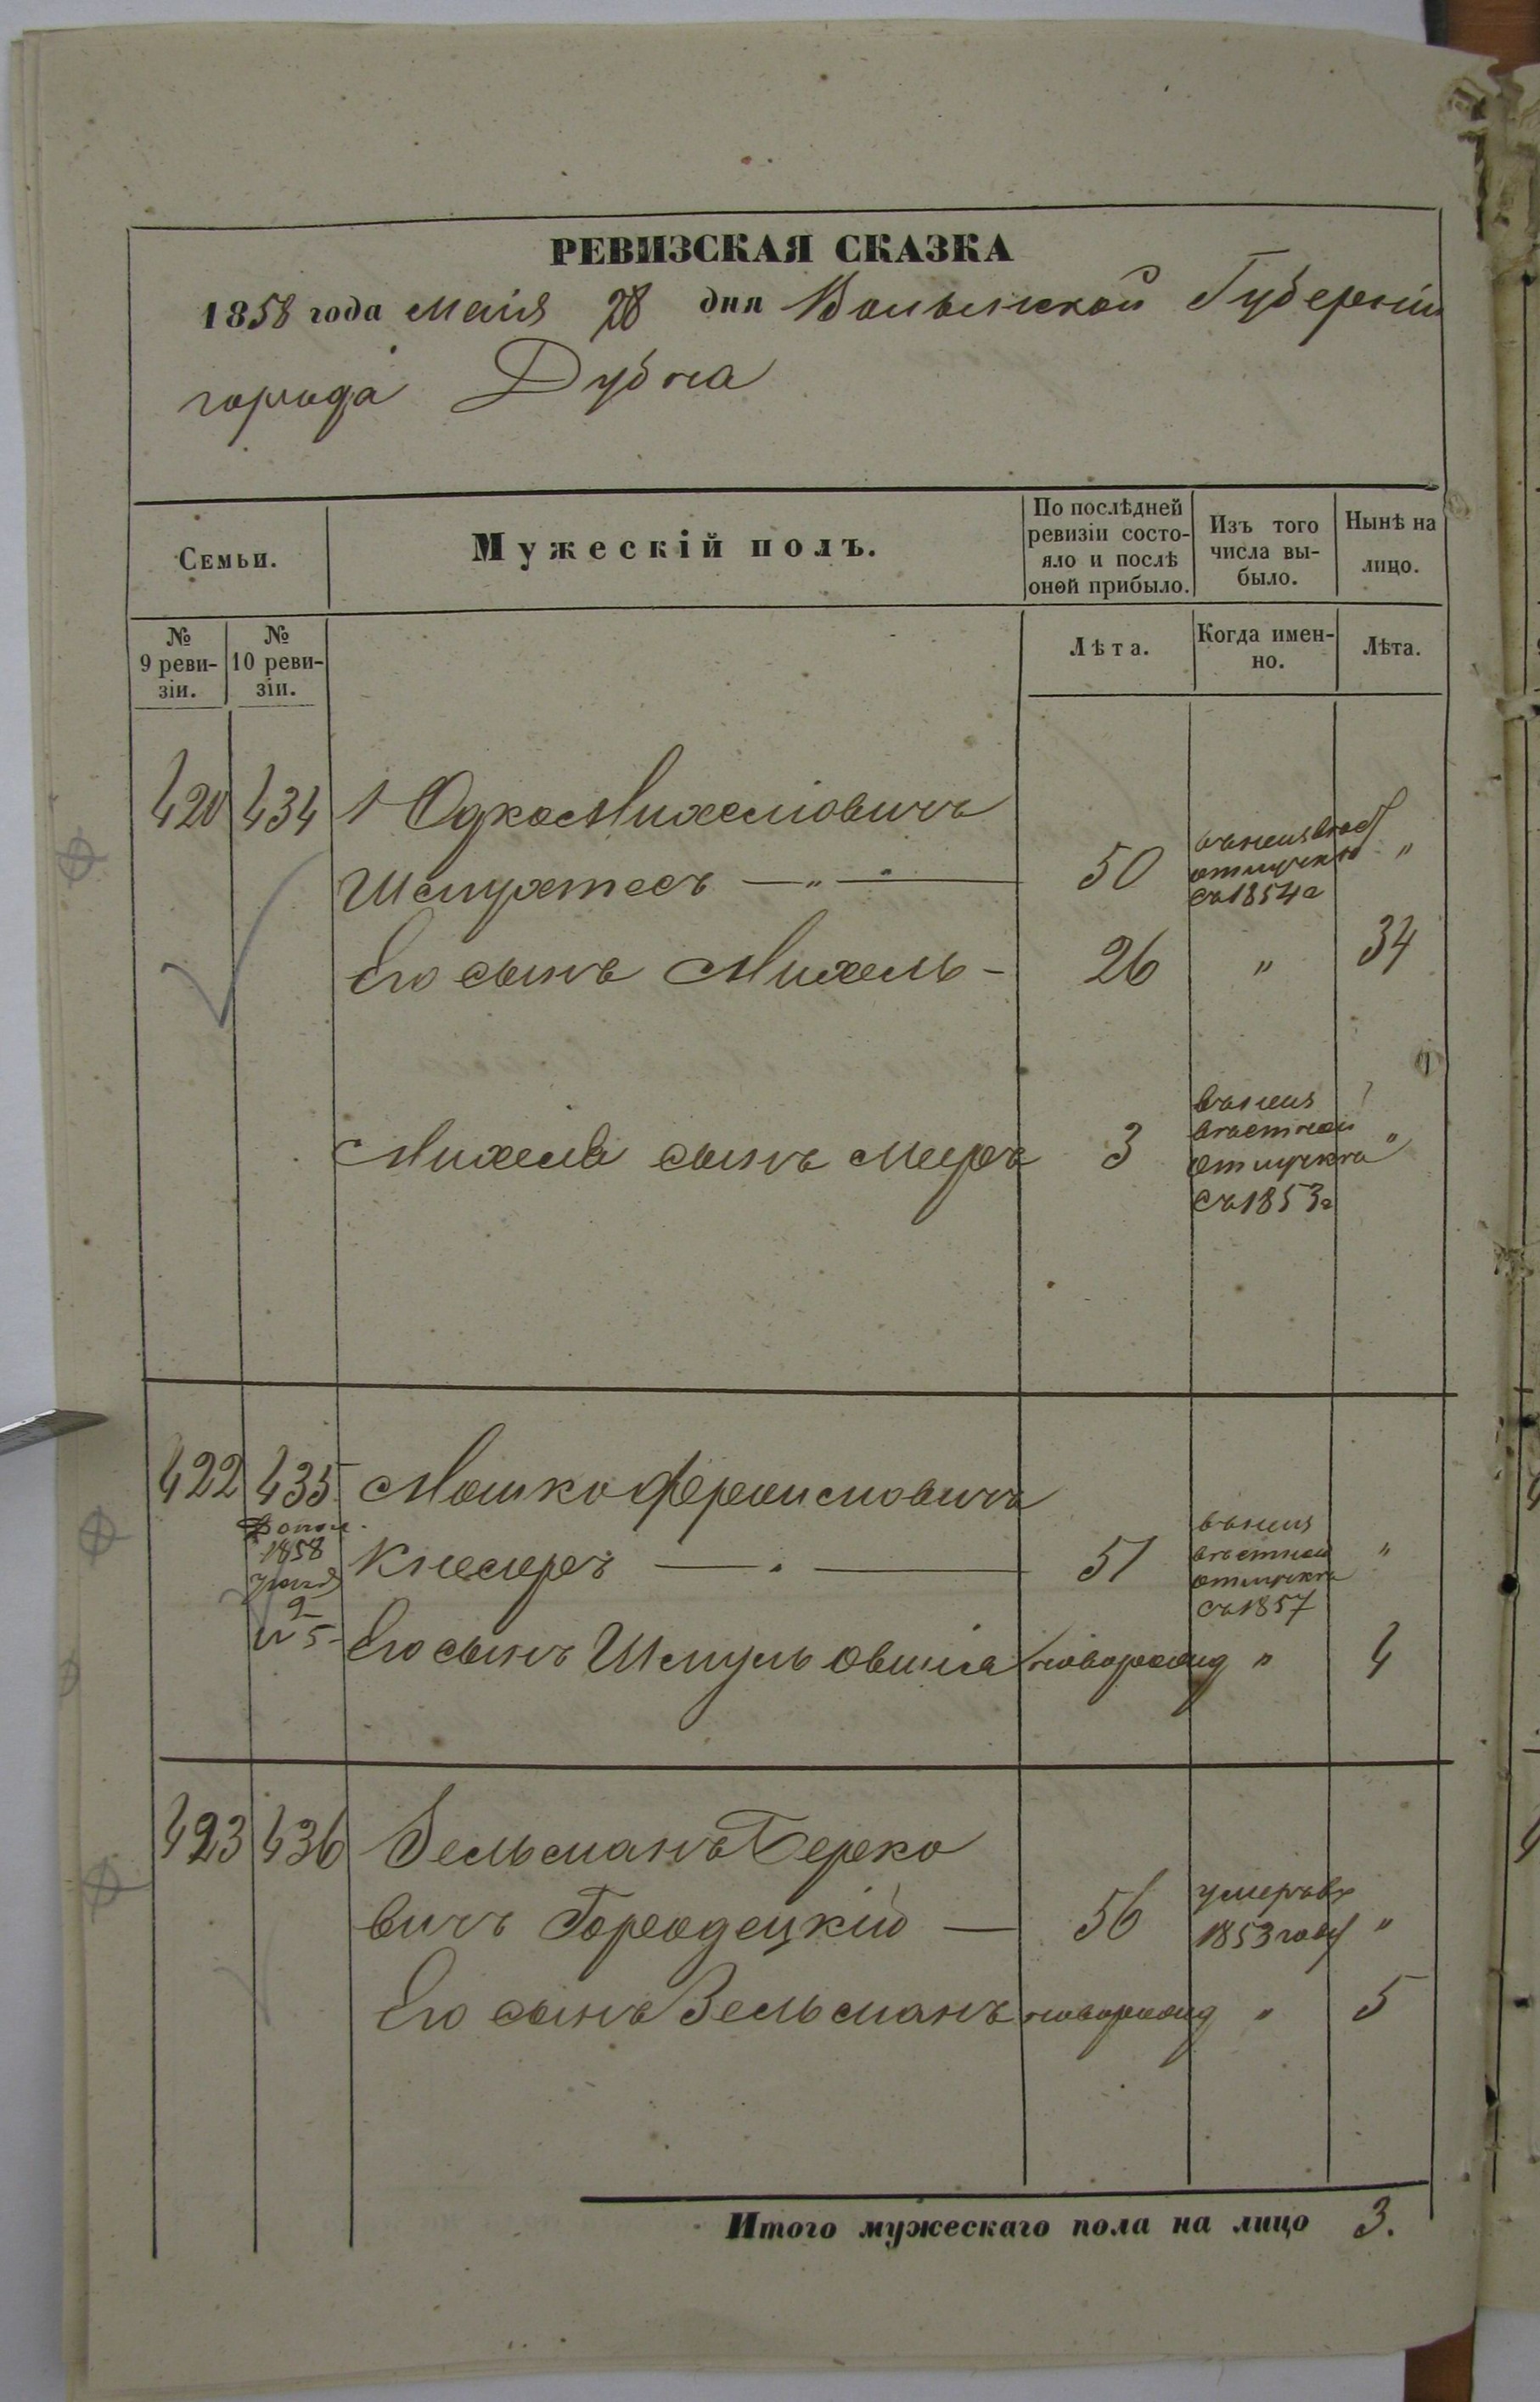 РЕВИЗСКАЯ СКАЗКА
1858 года маія 28 дня Волынской Губерніи
города Дубна
Семьи.
Мужескій полъ.
По послѣдней ревизіи состо-
яло и послѣ оной прибыло.
Изъ того числа вы-
было.
Нынѣ на лицо.
№ 9 реви-
зіи.
№ 10 реви-
зіи.
Лѣта.
Когда имен-
но.
Лѣта.
420 434 Юдко Михеліовичъ
Шмухтес ъ — „ — 50 въ неизвѣст отлучкѣ съ 1854 г „
Его сынъ Михель - 26 „ 34
Михеля сынъ Мееръ 3 въ неиз вѣстной отлучкѣ съ 1853 г „
422 435 Мошко
1858
№ 5
51 въ неиз вѣстной отлучкѣ съ 1857 „
Его сынъ Шмуль Овшіа новорожд „ 4
423 436 Зельманъ Берко
вичъ Городецкій — 56 умеръ въ 1853 году „
Его сынъ Зельманъ новорожд „ 5
Итого мужескаго пола на лицо 3.